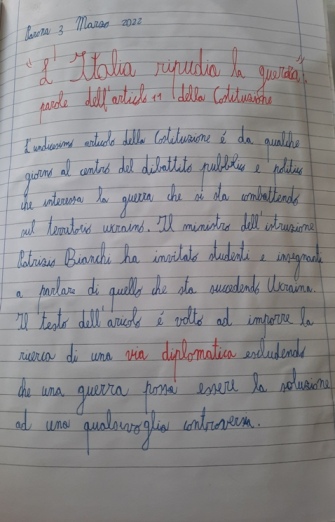 3 Marzo 2022
"L'Italia ripudia la guerra",
parole dell'articolo 11 della Costituzione
L'undicesimo articolo della Costituzione é da qualche
giorno al centro del dibattito pubblico e politico
che interessa la guerra che si sta combattendo
sul territorio ucraino. Il ministro dell'istruzione
Patrizio Bianchi ha invitato studenti e insegnanti
a parlare di quello che sta succedendo Ucraina.
Il testo dell' é volto ad imporre la
ricerca di una via diplomatica escludendo
che una guerra possa essere la soluzione
ad una qualsivoglia controversia.